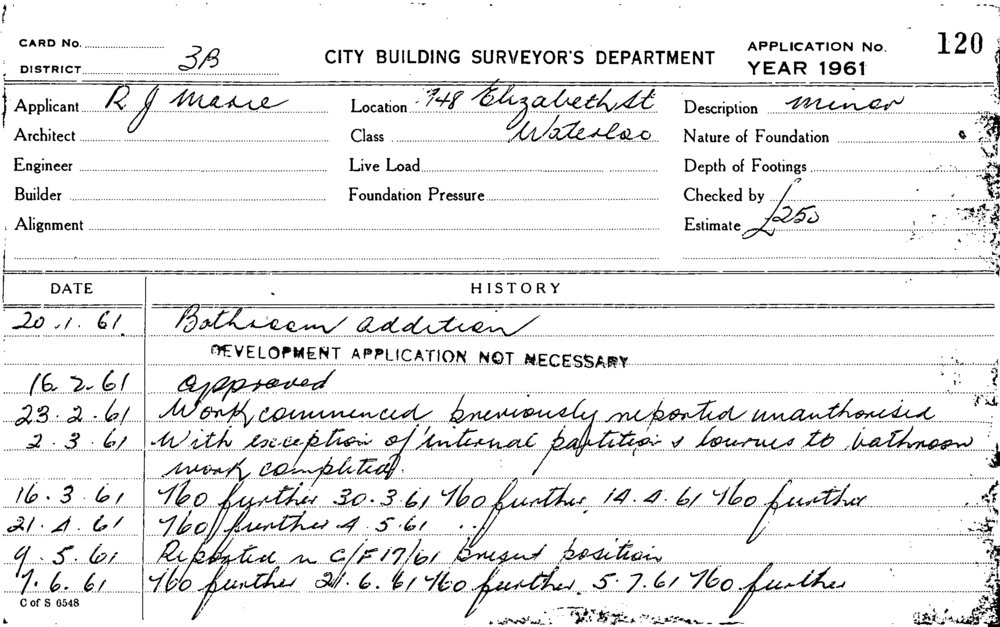 CARD No.
DISTRICT 3B
CITY BUILDING SURVEYOR'S DEPARTMENT
APPLICATION No. 120
YEAR 1961
Applicant R J Marie
Location 748 Elizabeth St
Description minor
Architect
Class Waterloo
Nature of Foundation
Engineer
Live Load
Depth of Footings
Builder
Foundation Pressure
Checked by
Alignment
Estimate £250
DATE HISTORY
20.1.61. Bathroom addition
DEVELOPMENT APPLICATION NOT NECESSARY
16.2.61 approved
23.2.61 Work commenced previously reported unauthorised
2.3.61 With exception of internal partition & louvres to bathroom
work completed.
16.3.61 No further 30.3.61 No further 14.4.61 No further
21.4.61 No further 4.5.61 "
9.5.61 Reported on C/F 17/61 present position
7.6.61 No further 21.6.61 No further. 5.7.61 No further
C of S 6548